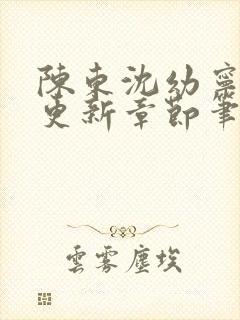 陳東沈幼寧
更新章節筆
雲霧塵埃